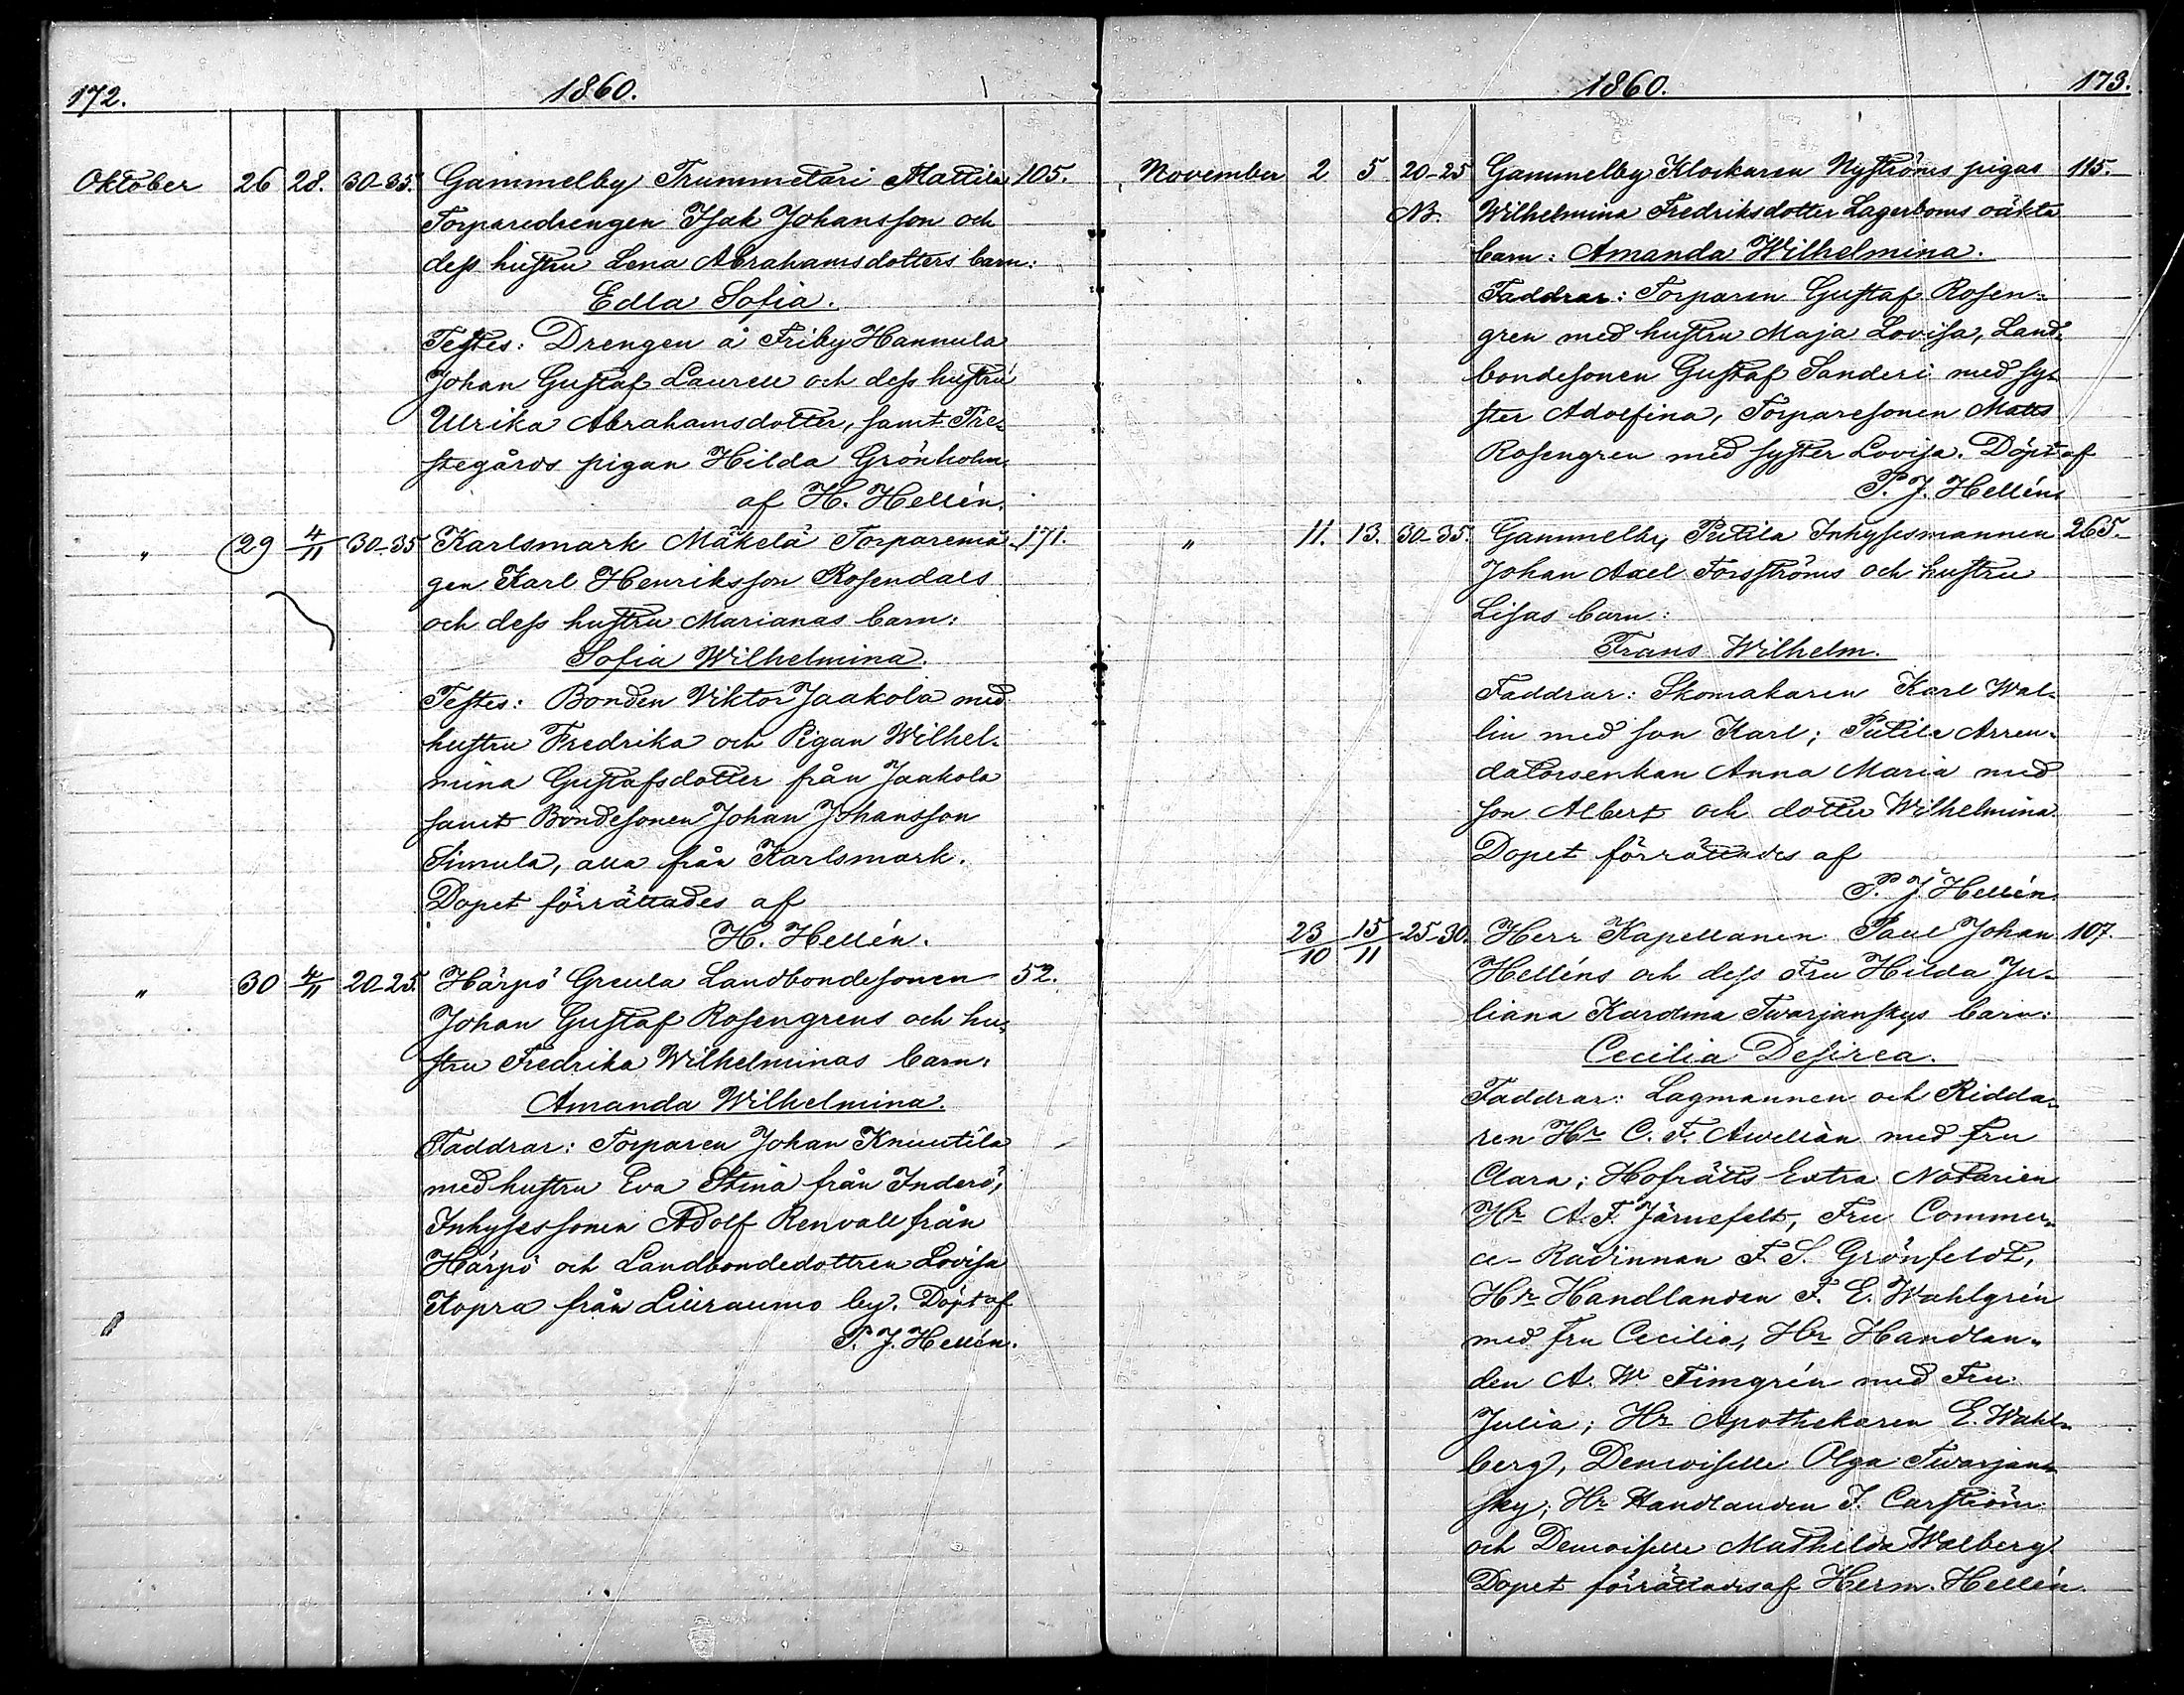 172. 1860.
Oktober 26 28. 30-35. Gammelby Trummetari Mattila 105.
Torparedrengen Isak Johansson och
dess hustru Lena Abrahamsdotters barn:
Edla Sofia.
Testes: Drengen å Friby Hannula
Johan Gustaf Laurell och dess hustru
Ulrika Abrahamsdotter, samt Pre-
stegårds pigan Hilda Grönholm.
af H. Hellén.
" 29 4/11 30-35 Karlsmark Mäkelä Torparemå- 171.
gen Karl Henriksson Rosendals
och dess hustru Marianas barn:
Sofia Wilhelmina.
Testes: Bonden Viktor Jaakola med
hustru Fredrika och Pigan Wilhel-
mina Gustafsdotter från Jaakola
samt Bondesonen Johan Johansson
Simula, alla från Karlsmark.
Dopet förrättades af
H. Hellén.
" 30 4/11 20-25. Härpö Greula Landbondesonen 52.
Johan Gustaf Rosengrens och hu-
stru Fredrika Wilhelminas barn:
Amanda Wilhelmina.
Faddrar: Torparen Johan Knuutila
med hustru Eva Stina från Inderö,
Inhysessonen Adolf Renvall från
Härpö och Landbondedottren Lovisa
Kopra från Lüiraumo by. Döpt af
P. J. Hellén.
1860. 173.
November 2 5 20-25 Gammelby Klockaren Nyströms pigas 115.
NB. Wilhelmina Fredriksdotter Lagerboms oäkta
barn: Amanda Wilhelmina.
Faddrar: Torparen Gustaf Rosen-
gren med hustru Maja Lovisa, Land-
bondesonen Gustaf Sanderi med sy-
ster Adolfina, Torparesonen Matts
Rosengren med syster Lovisa. Döpt af
P. J. Hellén.
" 11. 13. 30-35. Gammelby Putila Inhysesmannen 265.
Johan Axel Forsströms och hustru
Lisas barn:
Frans Wilhelm.
Faddrar: Skomakaren Karl Wal-
lin med son Karl; Putila Arren-
datorsenkan Anna Maria med
son Albert och dotter Wilhelmina
Dopet förrättades af
P. J. Hellén.
23/10 15/11 25-30. Herr Kapellanen Paul Johan 107.
Helléns och dess Fru Hilda Ju-
liana Karolina Twarjanskys barn:
Cecilia Desirea.
Faddrar: Lagmannen och Ridda-
ren Hr C. F. Awellàn med fru
Clara; Hofrätts Extra Notarien
Hr A. F. Järnefelt, Fru Commer-
ce-Rådinnan F. S. Grönfeldt,
Hr Handlanden F. E. Wahlgrén
med fru Cecilia, Hr Handlan-
den A. W. Timgrén med Fru
Julia; Hr Apothekaren E. Wahl-
berg, Demoiselle Olga Twarjan-
sky; Hr Handlanden J. Carström
och Demoiselle Mathilda Walberg.
Dopet förrättades af Herm. Hellén.